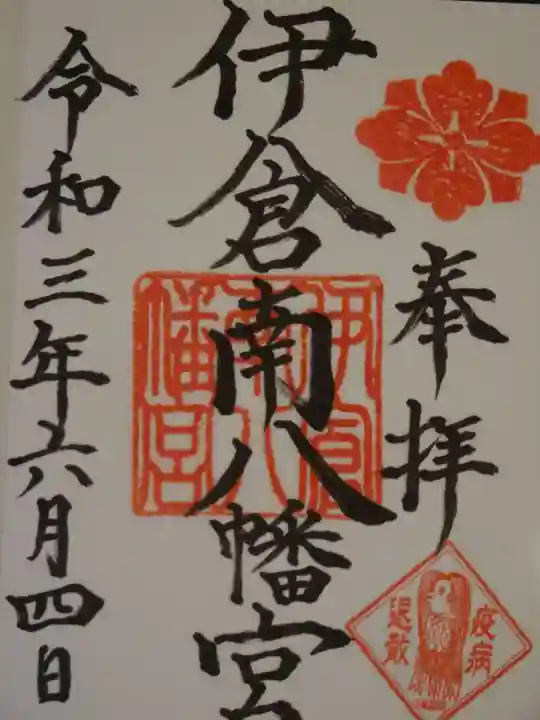 奉拝
伊倉南八幡宮
伊倉
南八
幡宮
令和三年六月四日
疫病
退散